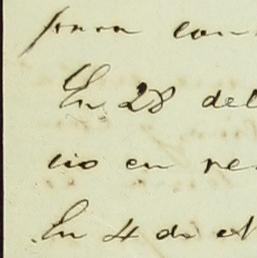 para con
En 28 del
cio en re
En 4 de N